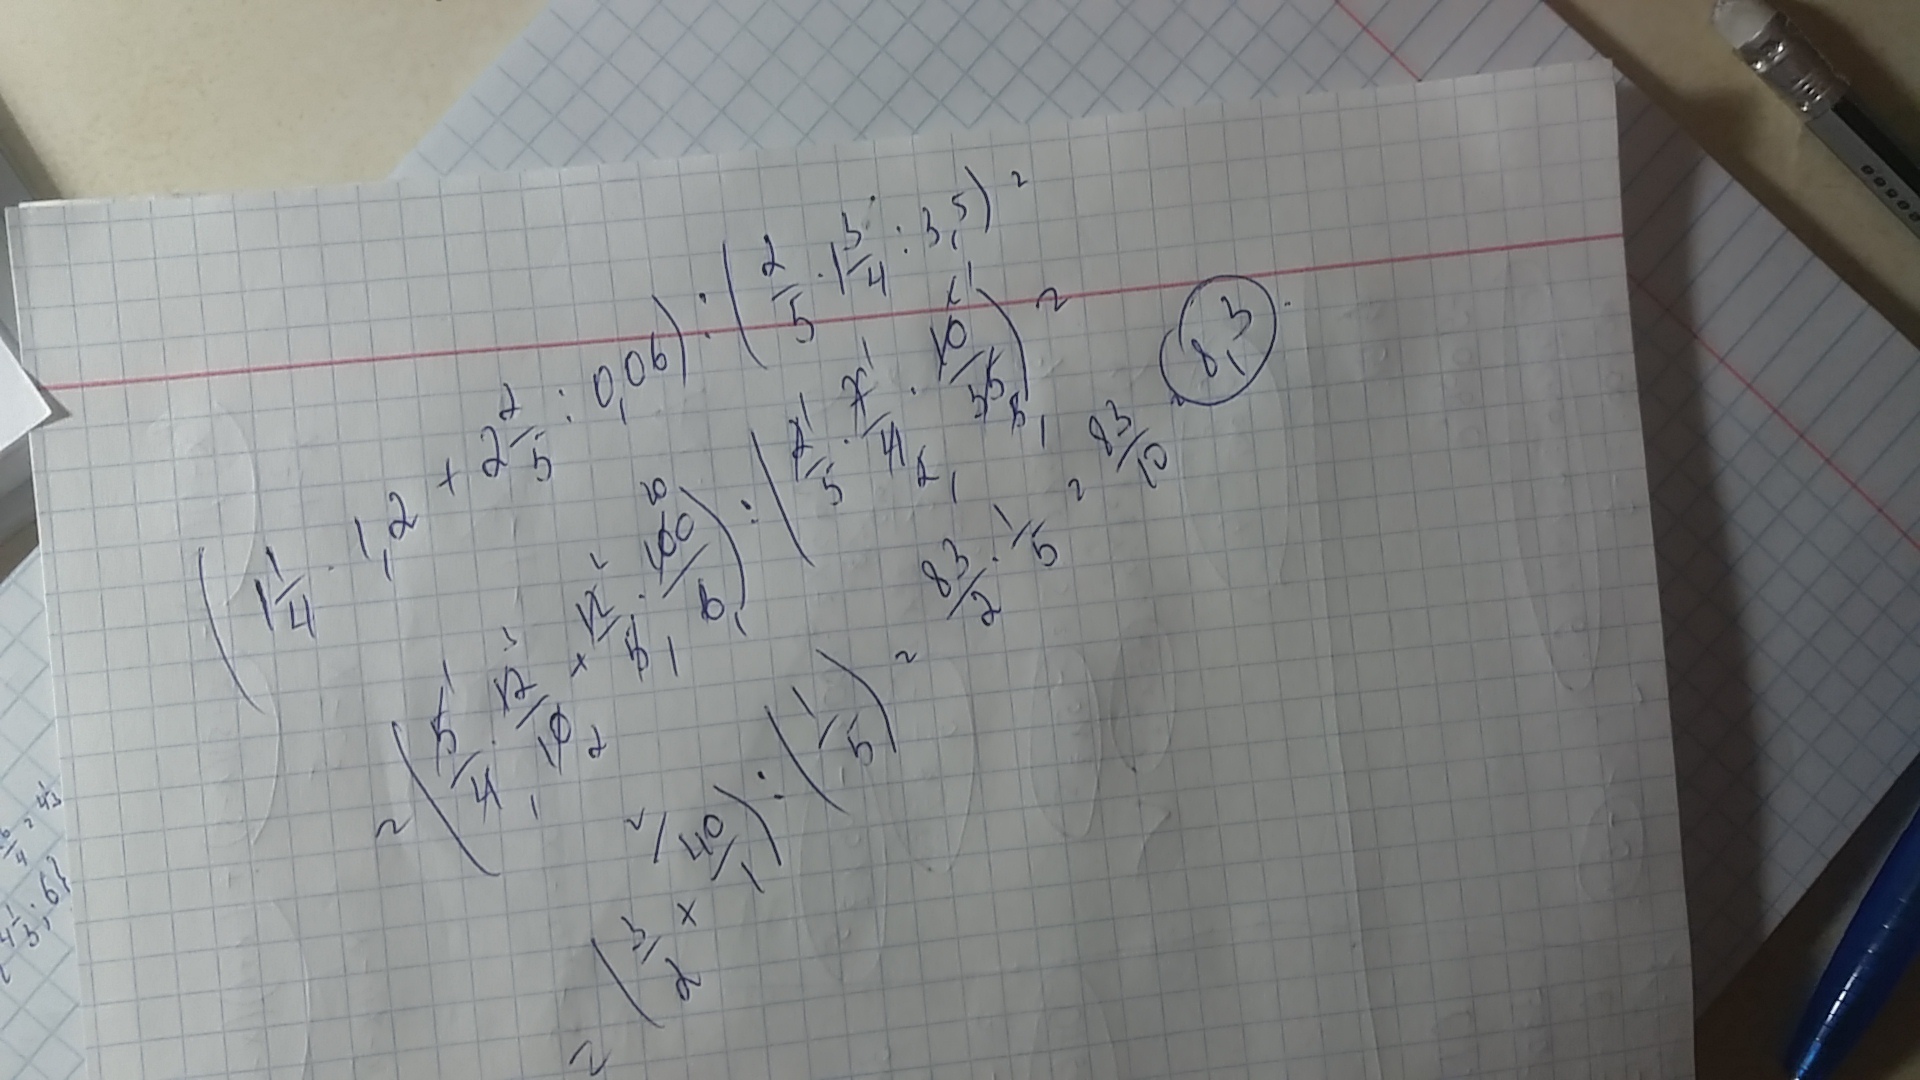 (1 1/4 · 1,2 + 2 2/5 : 0,06) : (2/5 · 1 3/4 : 3,5) =
= (5/4 · 12/10 + 12/5 · 100/6) : (2/5 · 7/4 · 10/35) =
= (3/2 + 40/1) : (1/5) =
83/2 · 1/5 = 83/10 = 8,3